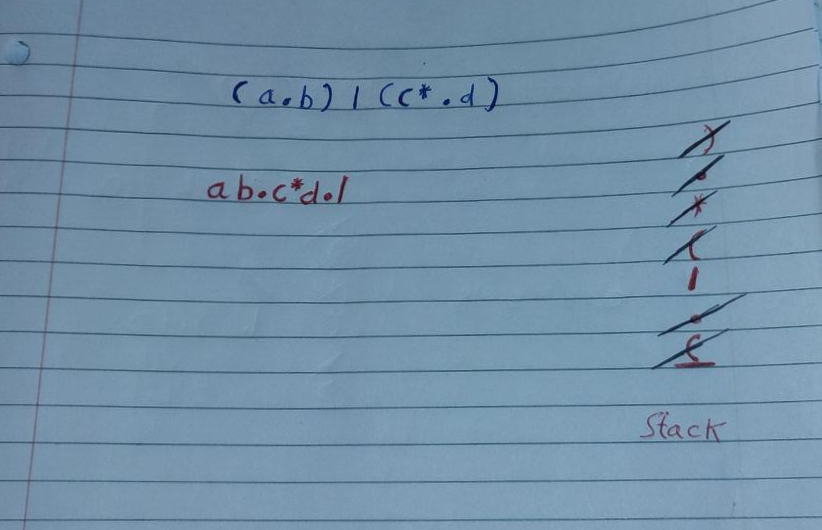 (a.b) | (c*.d)
ab.c*d.|
)
.
*
(
|
.
(
Stack